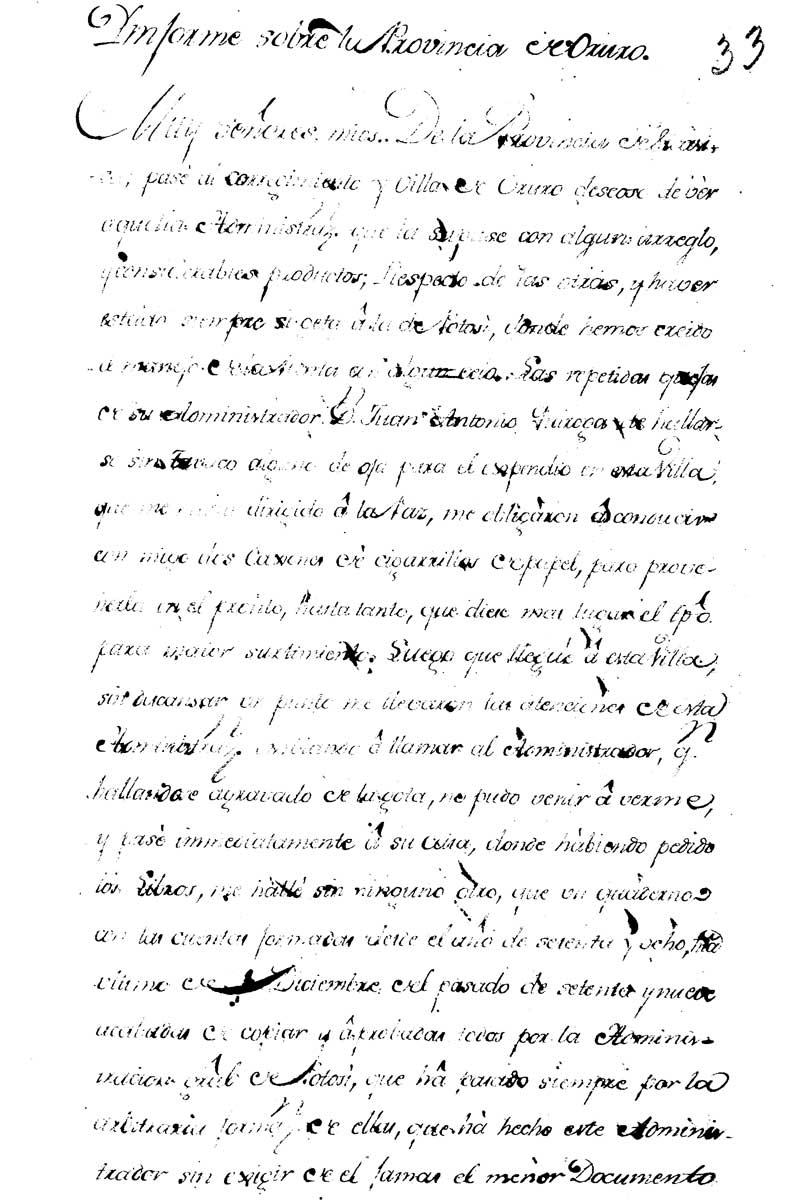 Ynforme sobre la Provincia de Oruro. 33
Muy señores mios. De la Provincia de
pasé al corregimiento y Villa de Oruro deseoso de vèr
aquella Administraz.n que la supuse con algun arreglo,
y considerables productos; Respecto de las otras, y haver
estado siempre sugeta â la de Potosì, donde hemos creido
el manejo de la Renta Las repetidas quejas
de su Administrador D.n Juan Antonio Quiroga de hallar-
se sin Tavaco alguno de oja para el expendio en esta Villa,
que me dirigido â la Paz, me obligàron â conducir
con migo dos Caxones de cigarrillos de papel, para prove-
herla en el pronto, hasta tanto, que diese mas lugar el tpô.
para maior surtimiento. Luego que lleguè â esta Villa,
sin descansar un punto me llevaron las atenciones de esta
Administraz.n embiando â llamar al Administrador, q.n
hallandose agravado de la gota, no pudo venir â verme,
y pasè immediatamente â su casa, donde hàbiendo pedido
los Libros, me hàllé sin ninguno otro, que un quàderno
con las cuentas formadas desde el año de setenta y ôcho, hta
ultimo de Diciembre del pasado de setenta y nueve
acabadas de copiar y âprobadas todas por la Adminis-
tracion grâl de Potosì, que hâ pasado siempre por la
arbitraria formaz.n de ellas, que hà hecho este Adminis-
trador sin exigir de el jamas el menor Documento